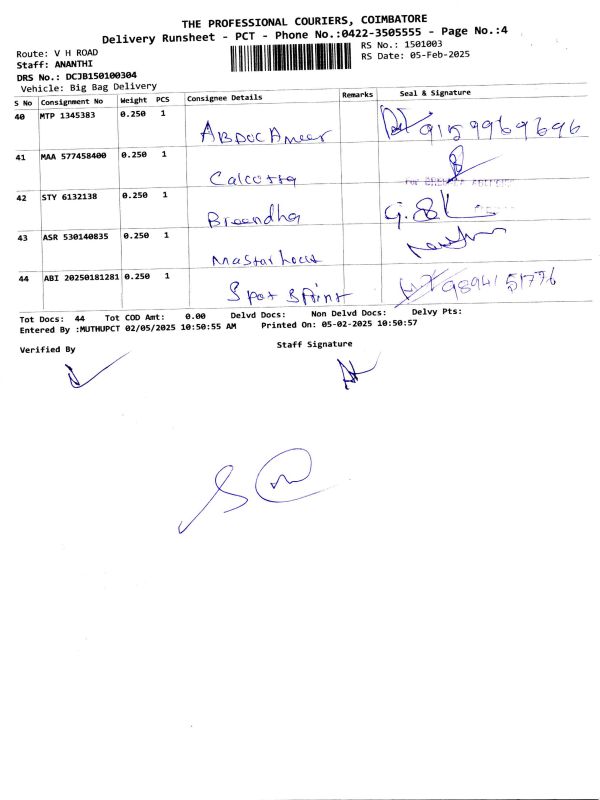 THE PROFESSIONAL COURIERS, COIMBATORE
Delivery Runsheet - PCT - Phone No.:0422-3505555 - Page No.:4
Route: V H ROAD
RS No.: 1501003
Staff: ANANTHI
RS Date: 05-Feb-2025
DRS No.: DCJB150100304
Vehicle: Big Bag Delivery
S No Consignment No Weight PCS Consignee Details Remarks Seal & Signature
40 MTP 1345383 0.250 1
9159969696
41 MAA 577458400 0.250 1
Calcutta
42 STY 6132138 0.250 1
Breendha
43 ASR 530140835 0.250 1
44 ABI 20250181281 0.250 1
Spot Print 9894151776
Tot Docs: 44 Tot COD Amt: 0.00 Delvd Docs: Non Delvd Docs: Delvy Pts:
Entered By :MUTHUPCT 02/05/2025 10:50:55 AM Printed On: 05-02-2025 10:50:57
Verified By Staff Signature